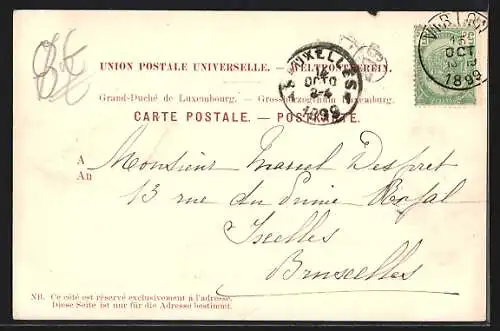 VIRTON
OCT
1899
5
UNION POSTALE UNIVERSELLE. – WELTPOSTVEREIN.
BRUXELLES
14
OCTO
3-4
1899
Grand-Duché de Luxembourg. – Grossherzogthum Luxemburg.
CARTE POSTALE. – POSTKARTE.
A Monsieur Marcel Despret
An
13 rue du Prince Royal
Ixelles
Bruxelles
NB. Ce côté est réservé exclusivement à l'adresse.
Diese Seite ist nur für die Adresse bestimmt.